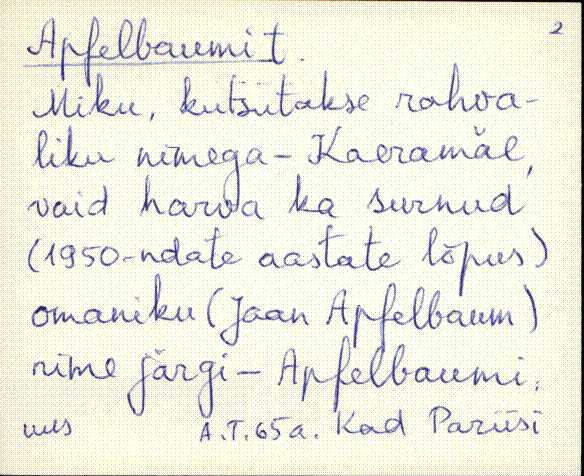 2
Apfelbaumi t.
Miku, kutsutakse rahva-
liku nimega - Kaeramäe,
vaid harva ka surnud
(1950-ndate aastate lõpus)
omaniku (Jaan Apfelbaum)
nime järgi - Apfelbaumi.
uus A.T. 65a. Kad Pariisi